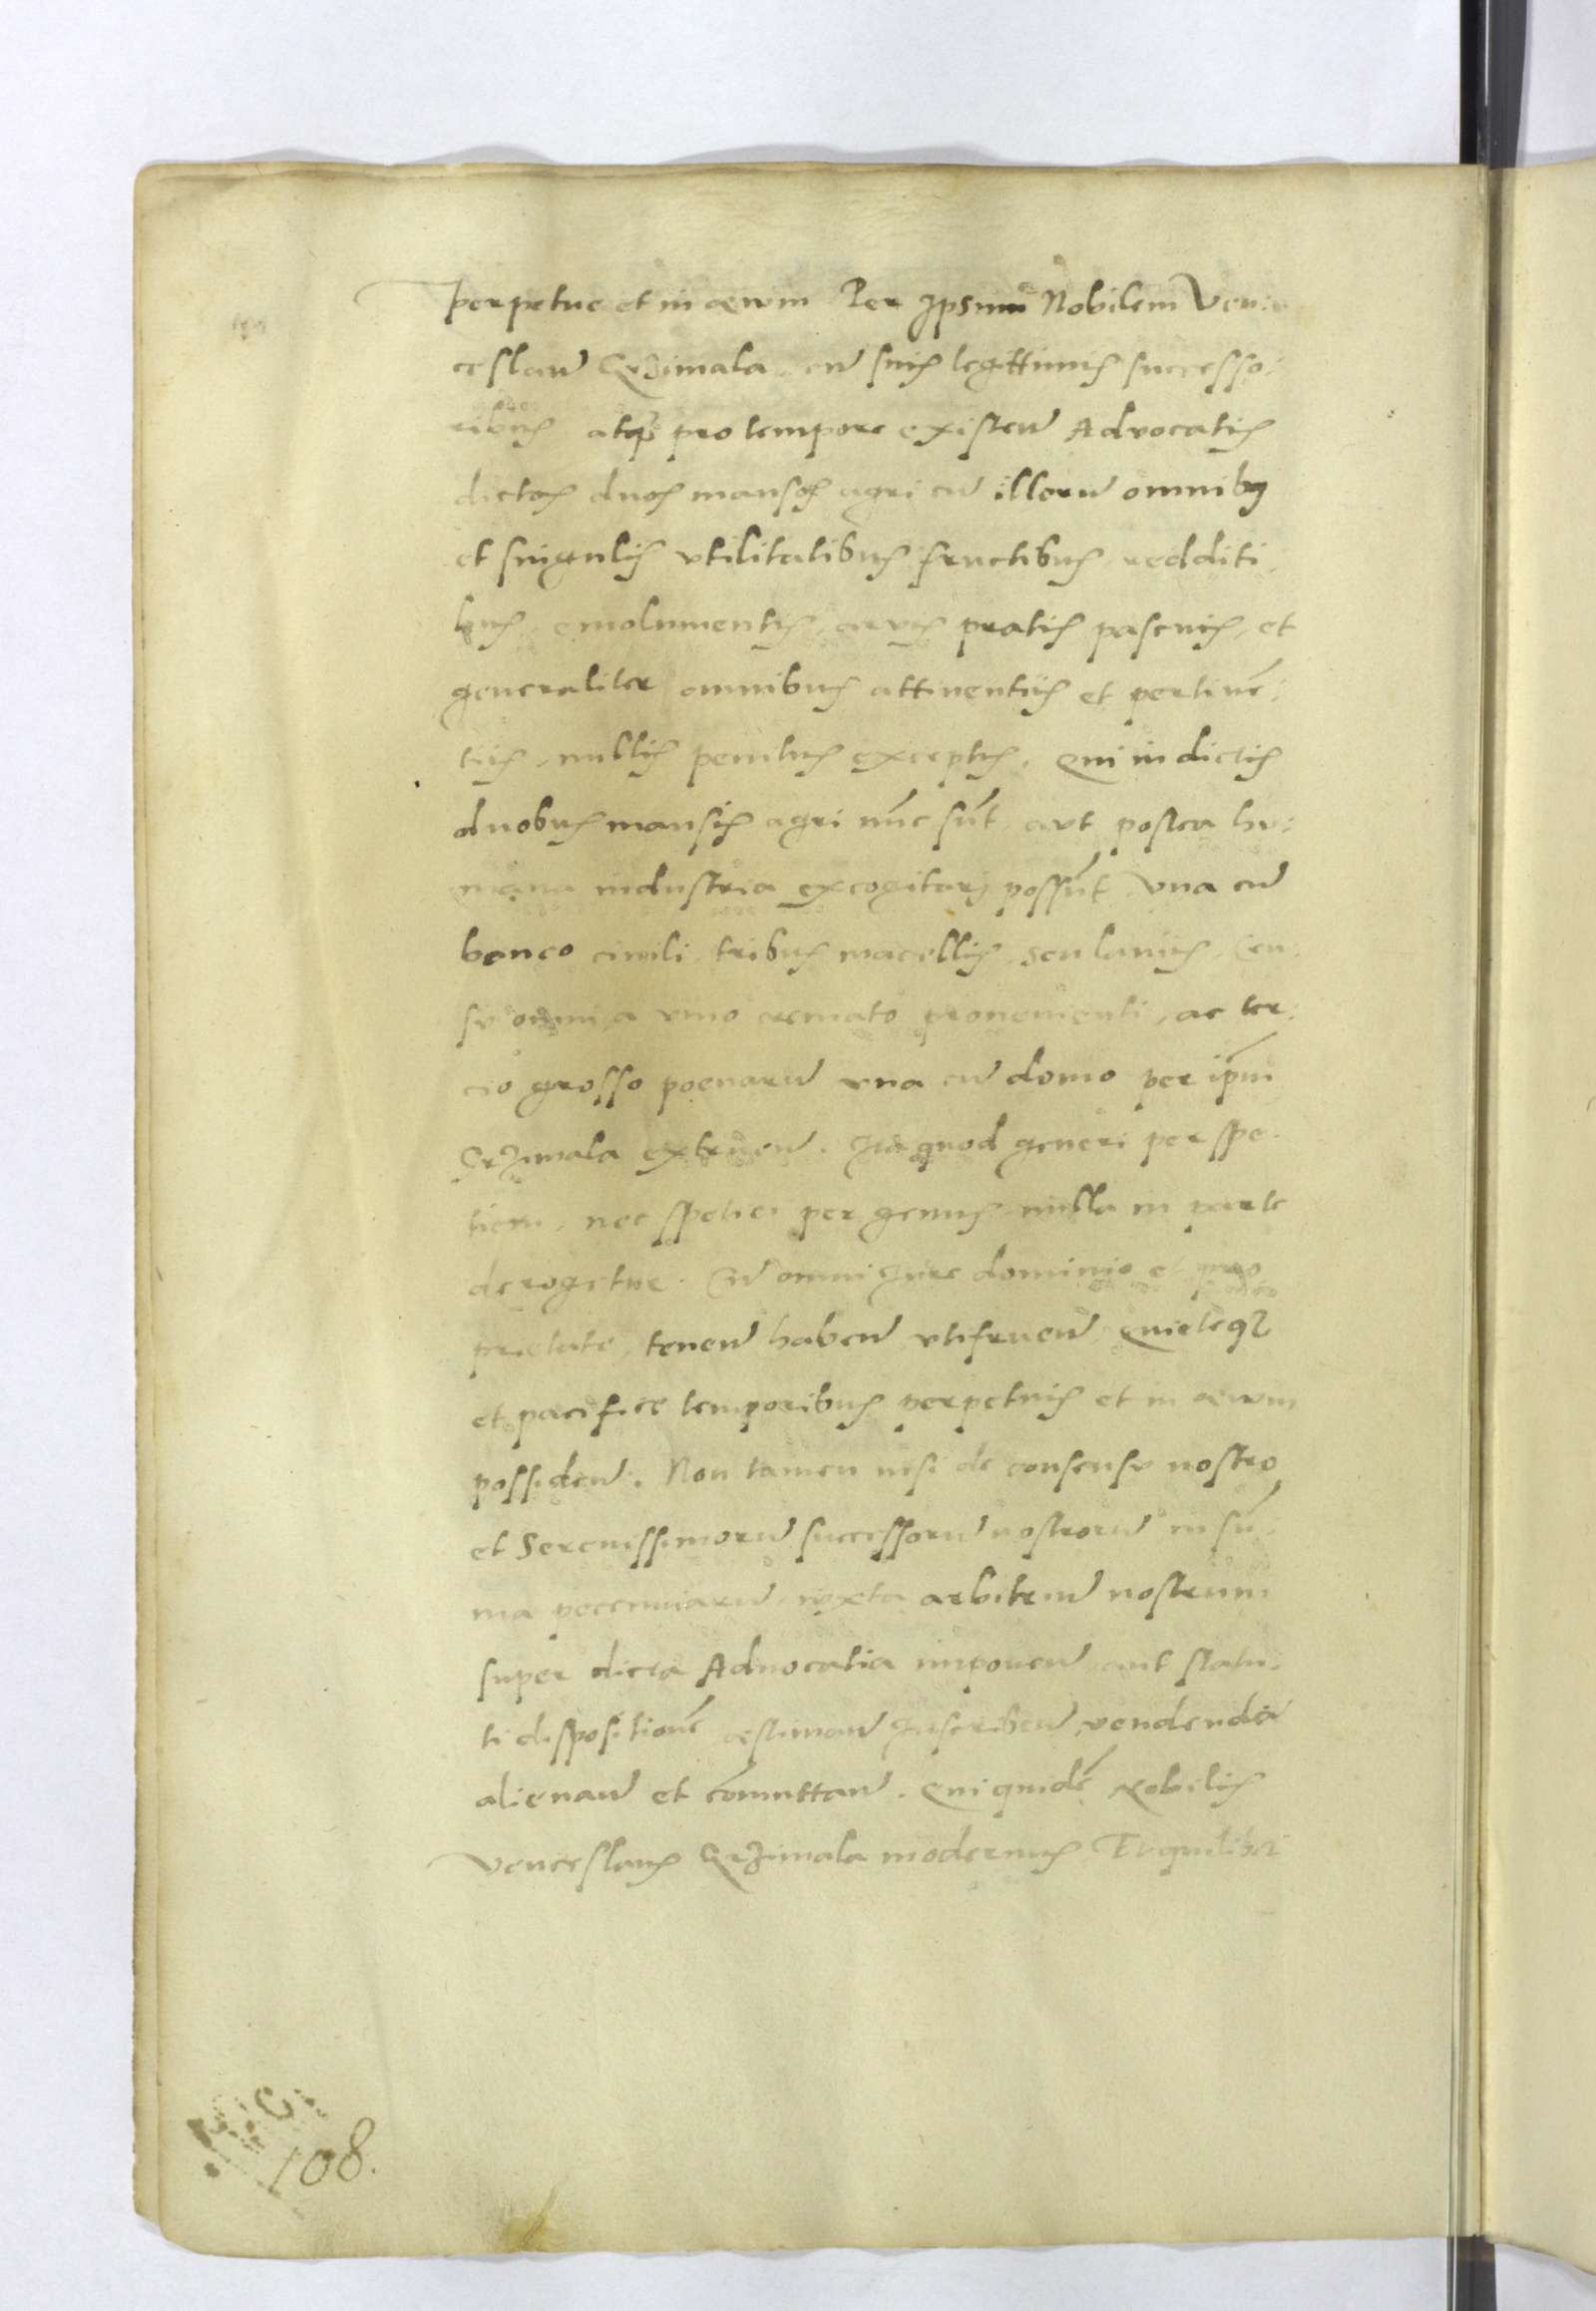 perpetue et in aevum Per Ipsum Nobilem Ven:
ceslaũ Crzimala, cũ suis legittimis successo:
ribus atqȝ pro tempore existeñ Advocatis
dictos duos mansos agri cũ illorũ omnibꝫ
et singulis utilitatibus fructibus redditi
bus, emolumentis, arvis pratis pascuis, et
generaliter omnibus attinentiis et pertinẽ:
tiis, nullis penitus exceptis, Qui in dictis
duobus mansis agri nũc sũt, avt postea hv:
mana industria excogitarj possũt, vna cũ
banco civili, tribus macellis, seu laniis, Cen:
sv omni, a vino cremato provenienti, ac ter:
cio grosso poenarũ vna cũ domo per ip̃m
Crzimala extrueñ. Ita quod generi per spe
tiem, nec spetiei per genus, nulla in parte
derogetur. Cũ omni Jure dominio et pro
prietate, teneñ habeñ vtifrueñ, Quieteqȝ
et pacifice temporibus perpetuis et in aevum
possideñ. Non tamen nisi de consensv nostro
et Serenissimorũ successorũ nostrorũ in sũ:
ma peccuniarũ, iuxta arbitriũ nostrum
super dicta Advocatia imponeñ aut statu:
ti dispositionẽ aestimañ Inscribeñ vendendã
alienañ et com̃uttañ. Qui quidẽ Nobilis
Venceslaus Crzimala modernus, Et quilibet
108.